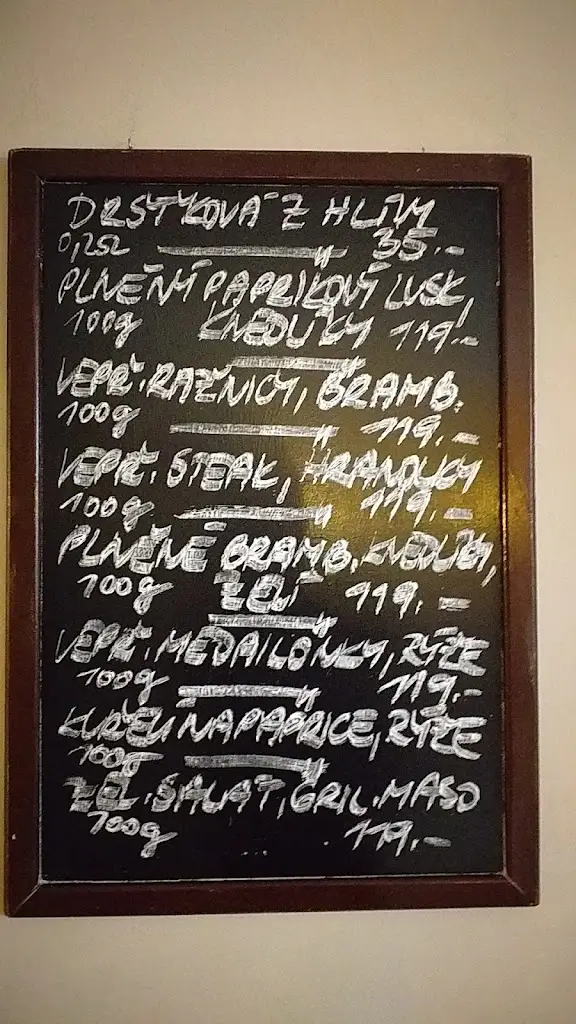 DRŠŤKOVÁ Z HLÍVY
0,25l 35.-
PLNĚNÝ PAPRIKOVÝ LUSK,
100g KNEDLÍKY 119.-
VEPŘ. RAŽNIČÍ, BRAMB.
100g 119.-
VEPŘ. STEAK, HRANOLKY
100g 119.-
PLNĚNÉ BRAMB. KNEDLÍKY,
100g ZELÍ 119.-
VEPŘ. MEDAILONKY, RÝŽE
100g 119.-
KUŘECÍ NA PAPRICE, RÝŽE
100g
ZEL. SALÁT, GRIL. MASO
100g 119.-